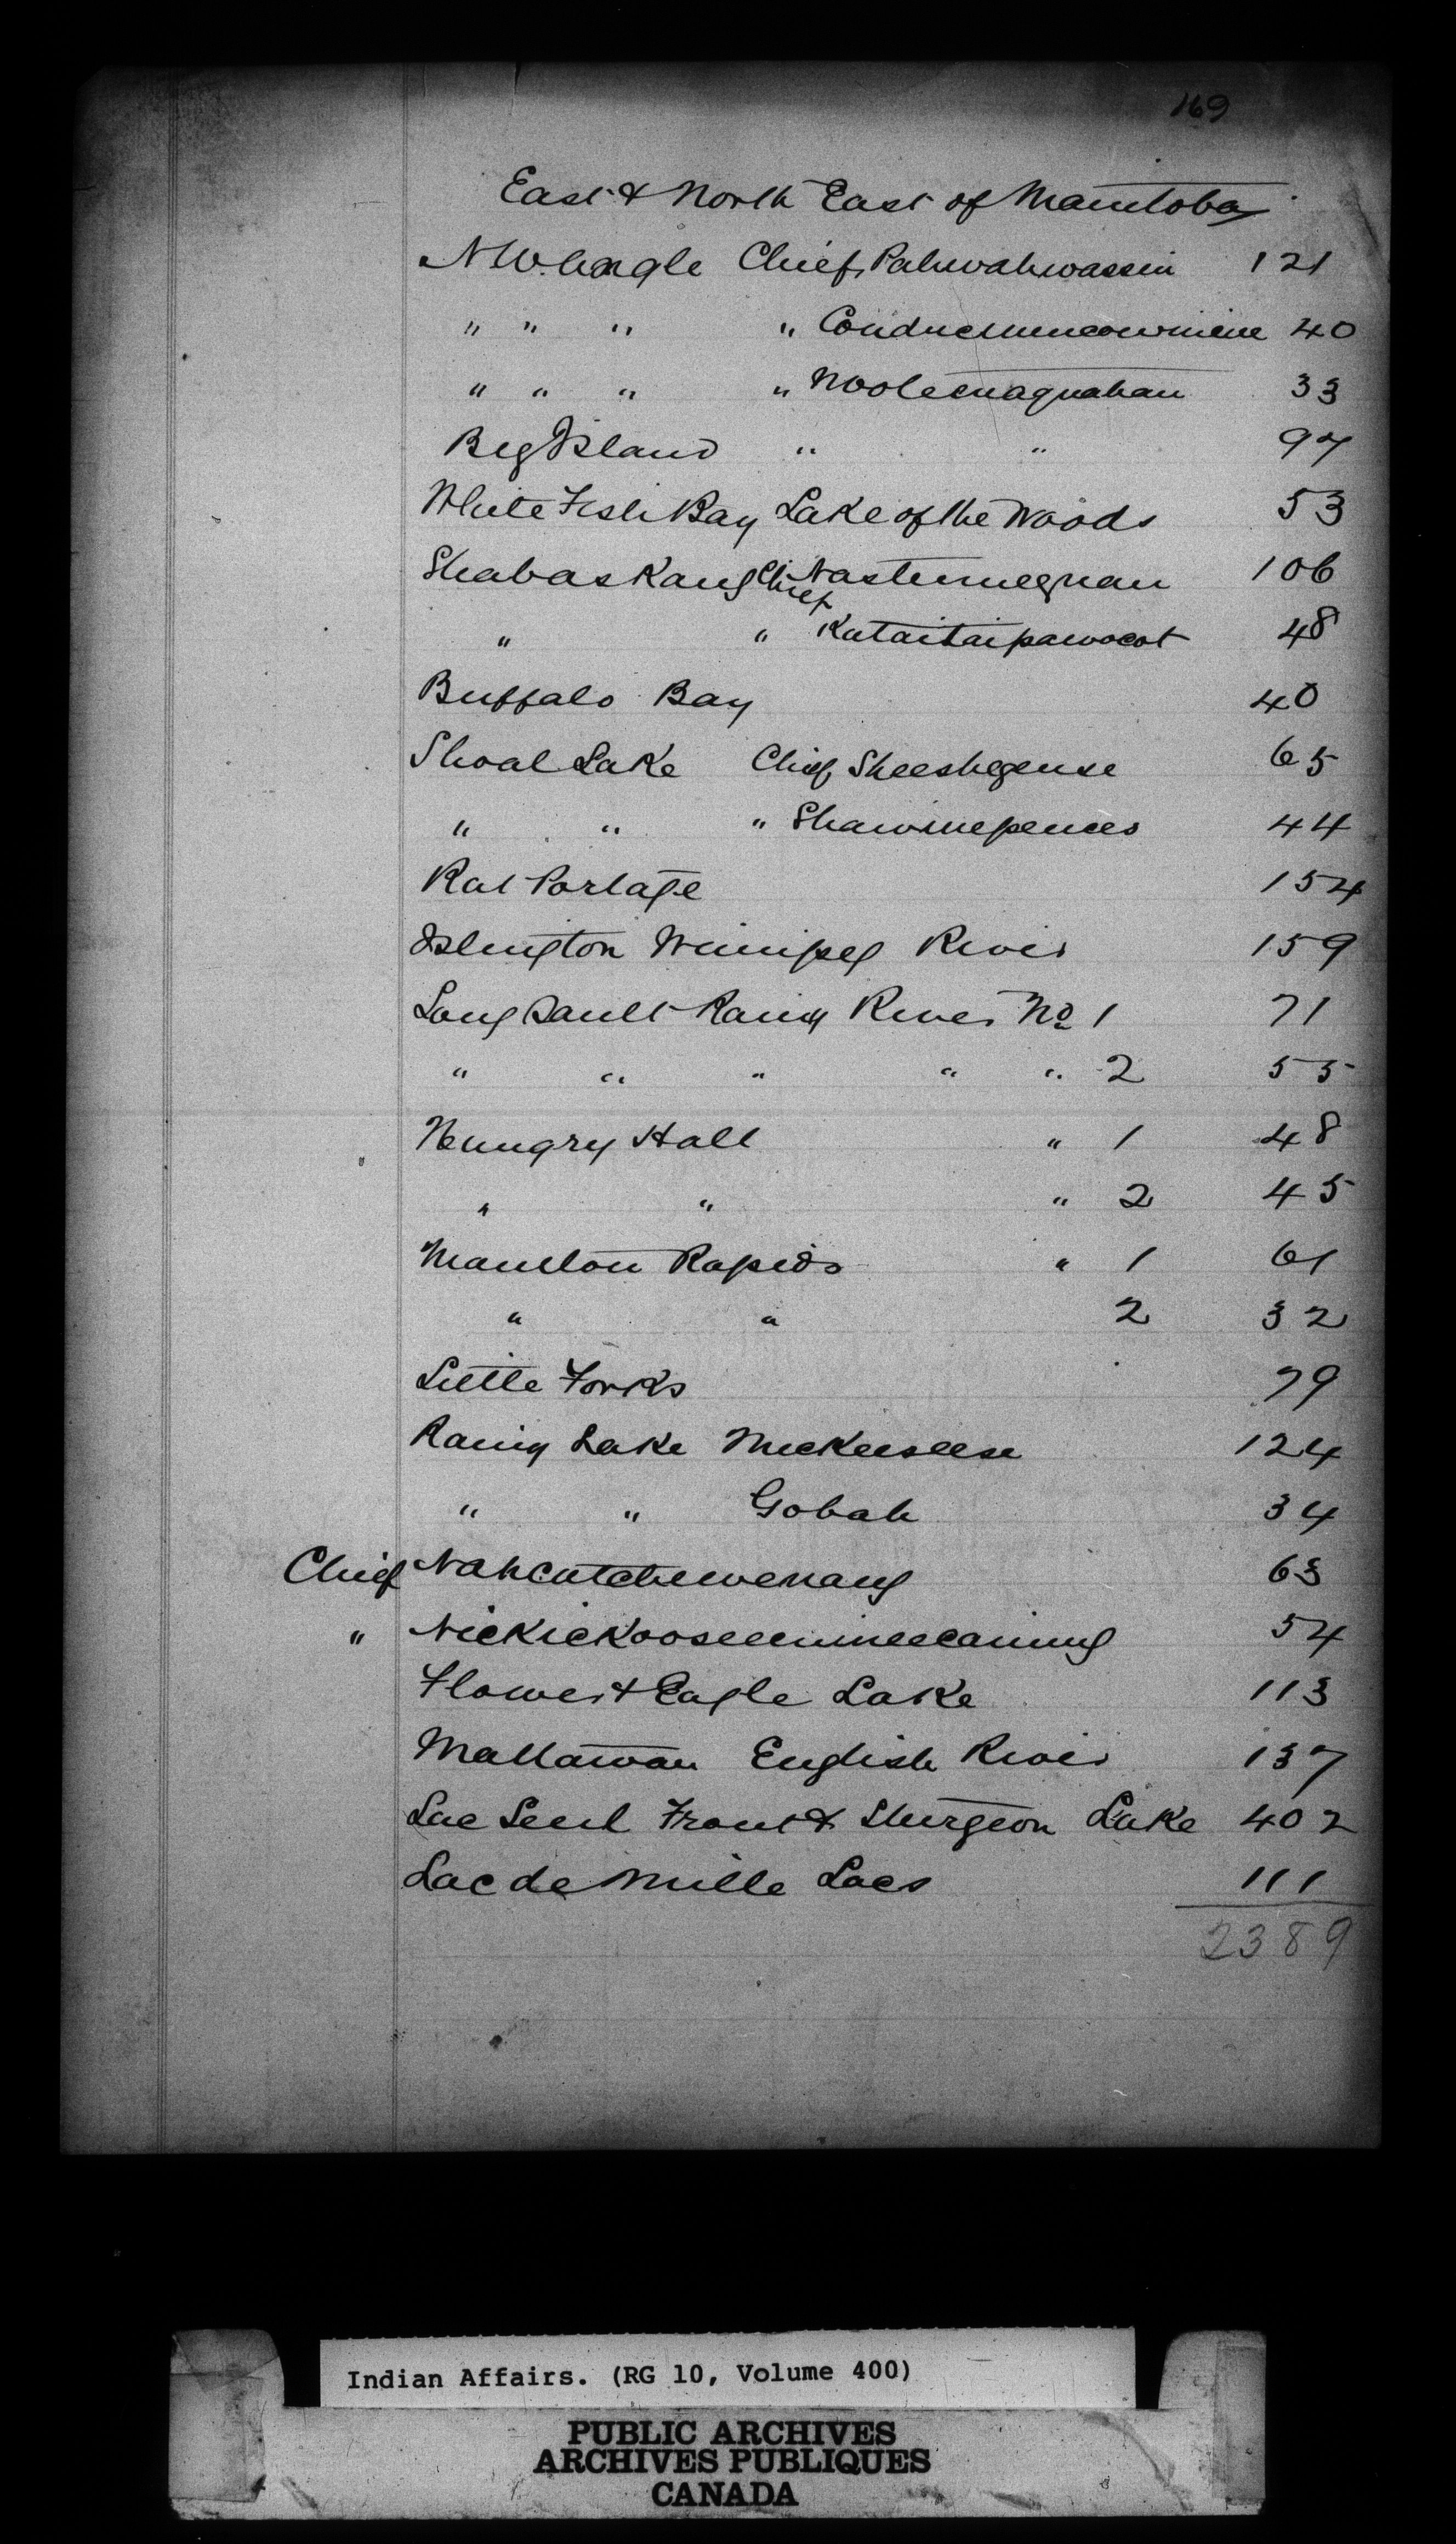 169
East & North East of Manitoba
N W. Angle Chief Pahwahwassin 121
" " " " Conducumcowinine 40
" " " " Noolenaquahan 33
Big Island " " 97
White Fish Bay Lake of the Woods 53
Shabaskang Chief Nastumegnan 106
" " Kutaitaipawocot 48
Buffalo Bay 40
Shoal Lake Chief Sheeshegense 65
" " " Shawinepences 44
Rat Portage 154
Islington Winnipeg River 159
Long Sault Rainy River No 1 71
" " " " " 2 55
Hungry Hall " 1 48
" " " 2 45
Manitou Rapids " 1 61
" " 2 32
Little Forks 79
Rainy Lake Mickeeseese 124
" " Gobah 34
Chief Nahcatchewenang 63
" Nickickooseeemineecaning 54
Flower & Eagle Lake 113
Mattawan English River 137
Lac Seul Trout & Sturgeon Lake 402
Lac de Mille Lacs 111
2389
Indian Affairs. (RG 10, Volume 400)
PUBLIC ARCHIVES
ARCHIVES PUBLIQUES
CANADA